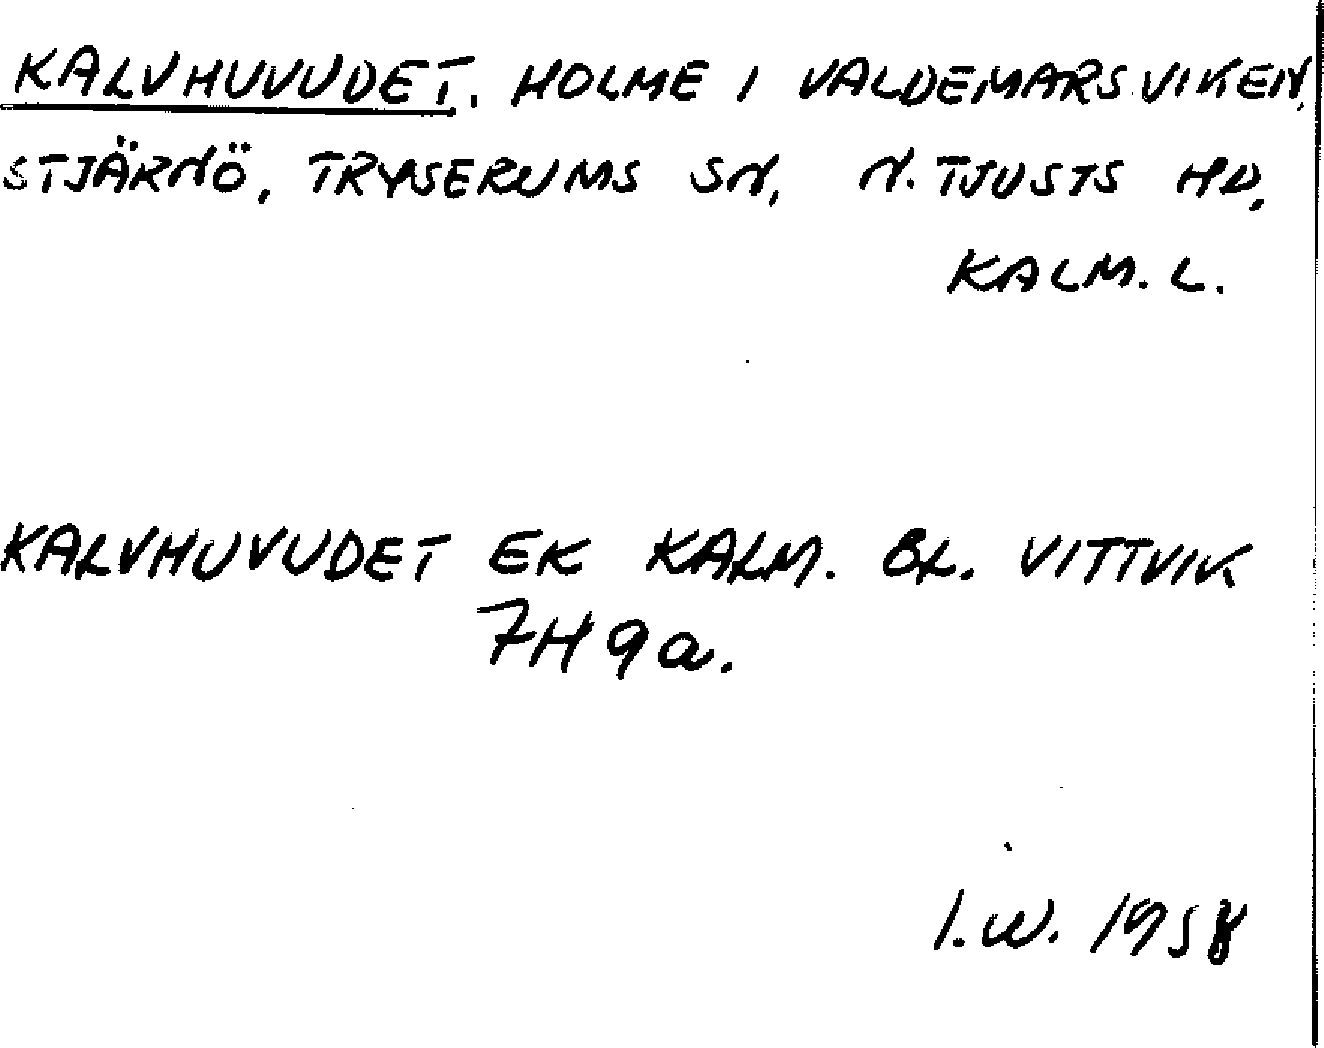 KALVHUVUDET. HOLME I VALDEMARSVIKEN,
STJÄRNÖ, TRYSERUMS SN, N. TJUSTS HD,
KALM. L.
KALVHUVUDET EK KALM. BL. VITTVIK
7H9a.
I.W. 1958